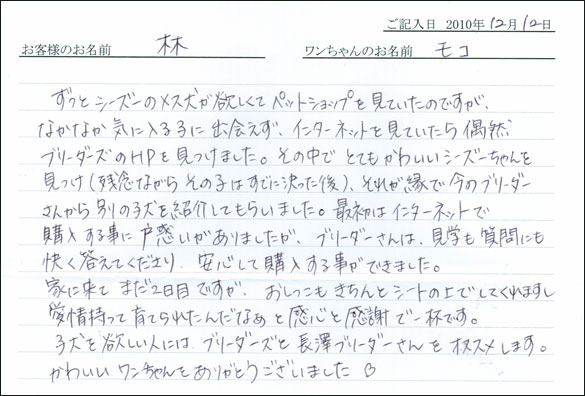 ご記入日 2010年12月12日
お客様のお名前 林 ワンちゃんのお名前 モコ
ずっとシーズーのメス犬が欲しくてペットショップを見ていたのですが、
なかなか気に入る子に出会えず、インターネットを見ていたら偶然、
ブリーダーズのHPを見つけました。その中でとてもかわいいシーズーちゃんを
見つけ(残念ながらその子はすでに決った後)、それが縁で今のブリーダー
さんから別の子犬を紹介してもらいました。最初はインターネットで
購入する事に戸惑いがありましたが、ブリーダーさんは、見学も質問にも
快く答えてくださり、安心して購入する事ができました。
家に来てまだ2日目ですが、おしっこもきちんとシートの上でしてくれますし
愛情持って育てられたんだなぁと感心と感謝で一杯です。
子犬を欲しい人には、ブリーダーズと長澤ブリーダーさんをオススメします。
かわいいワンちゃんをありがとうございました♡